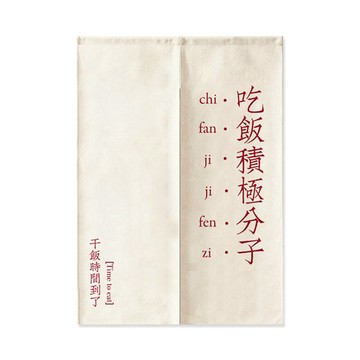 吃飯積極分子
chi •
fan •
ji •
ji •
fen •
zi •
干飯時間到了
[Time to eat]